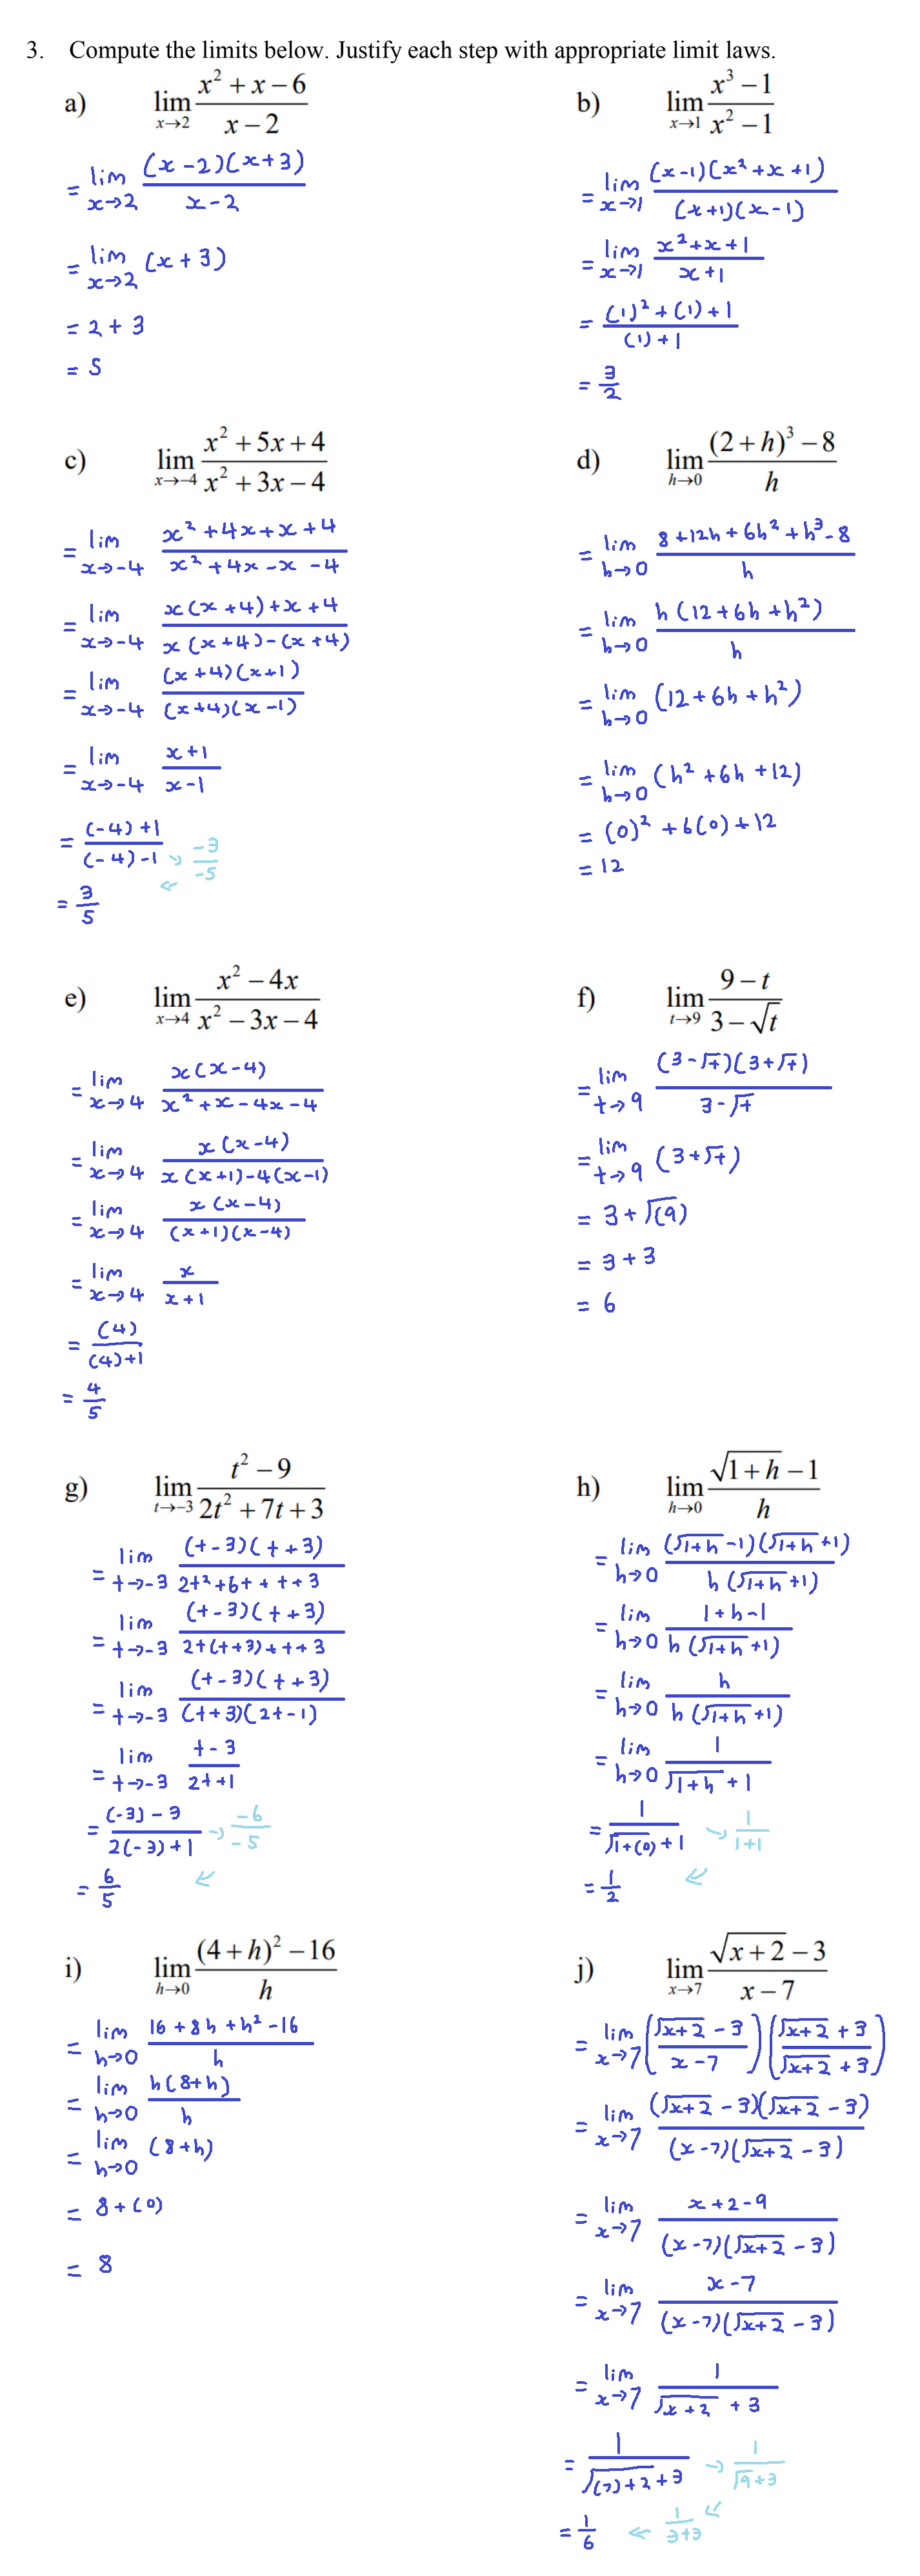 3. Compute the limits below. Justify each step with appropriate limit laws.
a) lim x→2 (x² + x − 6)/(x − 2)
= lim x→2 ((x − 2)(x + 3))/(x − 2)
= lim x→2 (x + 3)
= 2 + 3
= 5
b) lim x→1 (x³ − 1)/(x² − 1)
= lim x→1 ((x − 1)(x² + x + 1))/((x + 1)(x − 1))
= lim x→1 (x² + x + 1)/(x + 1)
= ((1)² + (1) + 1)/((1) + 1)
= 3/2
c) lim x→−4 (x² + 5x + 4)/(x² + 3x − 4)
= lim x→−4 (x² + 4x + x + 4)/(x² + 4x − x − 4)
= lim x→−4 (x(x + 4) + x + 4)/(x(x + 4) − (x + 4))
= lim x→−4 ((x + 4)(x + 1))/((x + 4)(x − 1))
= lim x→−4 (x + 1)/(x − 1)
= ((−4) + 1)/((−4) − 1) → (−3)/(−5)
= 3/5 ←
d) lim h→0 ((2 + h)³ − 8)/h
= lim h→0 (8 + 12h + 6h² + h³ − 8)/h
= lim h→0 (h(12 + 6h + h²))/h
= lim h→0 (12 + 6h + h²)
= lim h→0 (h² + 6h + 12)
= (0)² + 6(0) + 12
= 12
e) lim x→4 (x² − 4x)/(x² − 3x − 4)
= lim x→4 (x(x − 4))/(x² + x − 4x − 4)
= lim x→4 (x(x − 4))/(x(x + 1) − 4(x − 1))
= lim x→4 (x(x − 4))/((x + 1)(x − 4))
= lim x→4 x/(x + 1)
= (4)/((4) + 1)
= 4/5
f) lim t→9 (9 − t)/(3 − √t)
= lim t→9 ((3 − √t)(3 + √t))/(3 − √t)
= lim t→9 (3 + √t)
= 3 + √(9)
= 3 + 3
= 6
g) lim t→−3 (t² − 9)/(2t² + 7t + 3)
= lim t→−3 ((t − 3)(t + 3))/(2t² + 6t + t + 3)
= lim t→−3 ((t − 3)(t + 3))/(2t(t + 3) + t + 3)
= lim t→−3 ((t − 3)(t + 3))/((t + 3)(2t − 1))
= lim t→−3 (t − 3)/(2t + 1)
= ((−3) − 3)/(2(−3) + 1) → (−6)/(−5)
= 6/5 ←
h) lim h→0 (√(1 + h) − 1)/h
= lim h→0 ((√(1 + h) − 1)(√(1 + h) + 1))/(h(√(1 + h) + 1))
= lim h→0 (1 + h − 1)/(h(√(1 + h) + 1))
= lim h→0 h/(h(√(1 + h) + 1))
= lim h→0 1/(√(1 + h) + 1)
= 1/(√(1 + (0)) + 1) → 1/(1 + 1)
= 1/2 ←
i) lim h→0 ((4 + h)² − 16)/h
= lim h→0 (16 + 8h + h² − 16)/h
= lim h→0 (h(8 + h))/h
= lim h→0 (8 + h)
= 8 + (0)
= 8
j) lim x→7 (√(x + 2) − 3)/(x − 7)
= lim x→7 ((√(x + 2) − 3)/(x − 7))((√(x + 2) + 3)/(√(x + 2) + 3))
= lim x→7 ((√(x + 2) − 3)(√(x + 2) − 3))/((x − 7)(√(x + 2) − 3))
= lim x→7 (x + 2 − 9)/((x − 7)(√(x + 2) − 3))
= lim x→7 (x − 7)/((x − 7)(√(x + 2) − 3))
= lim x→7 1/(√(x + 2) + 3)
= 1/(√((7) + 2) + 3) → 1/(√9 + 3)
= 1/6 ← 1/(3 + 3) ←